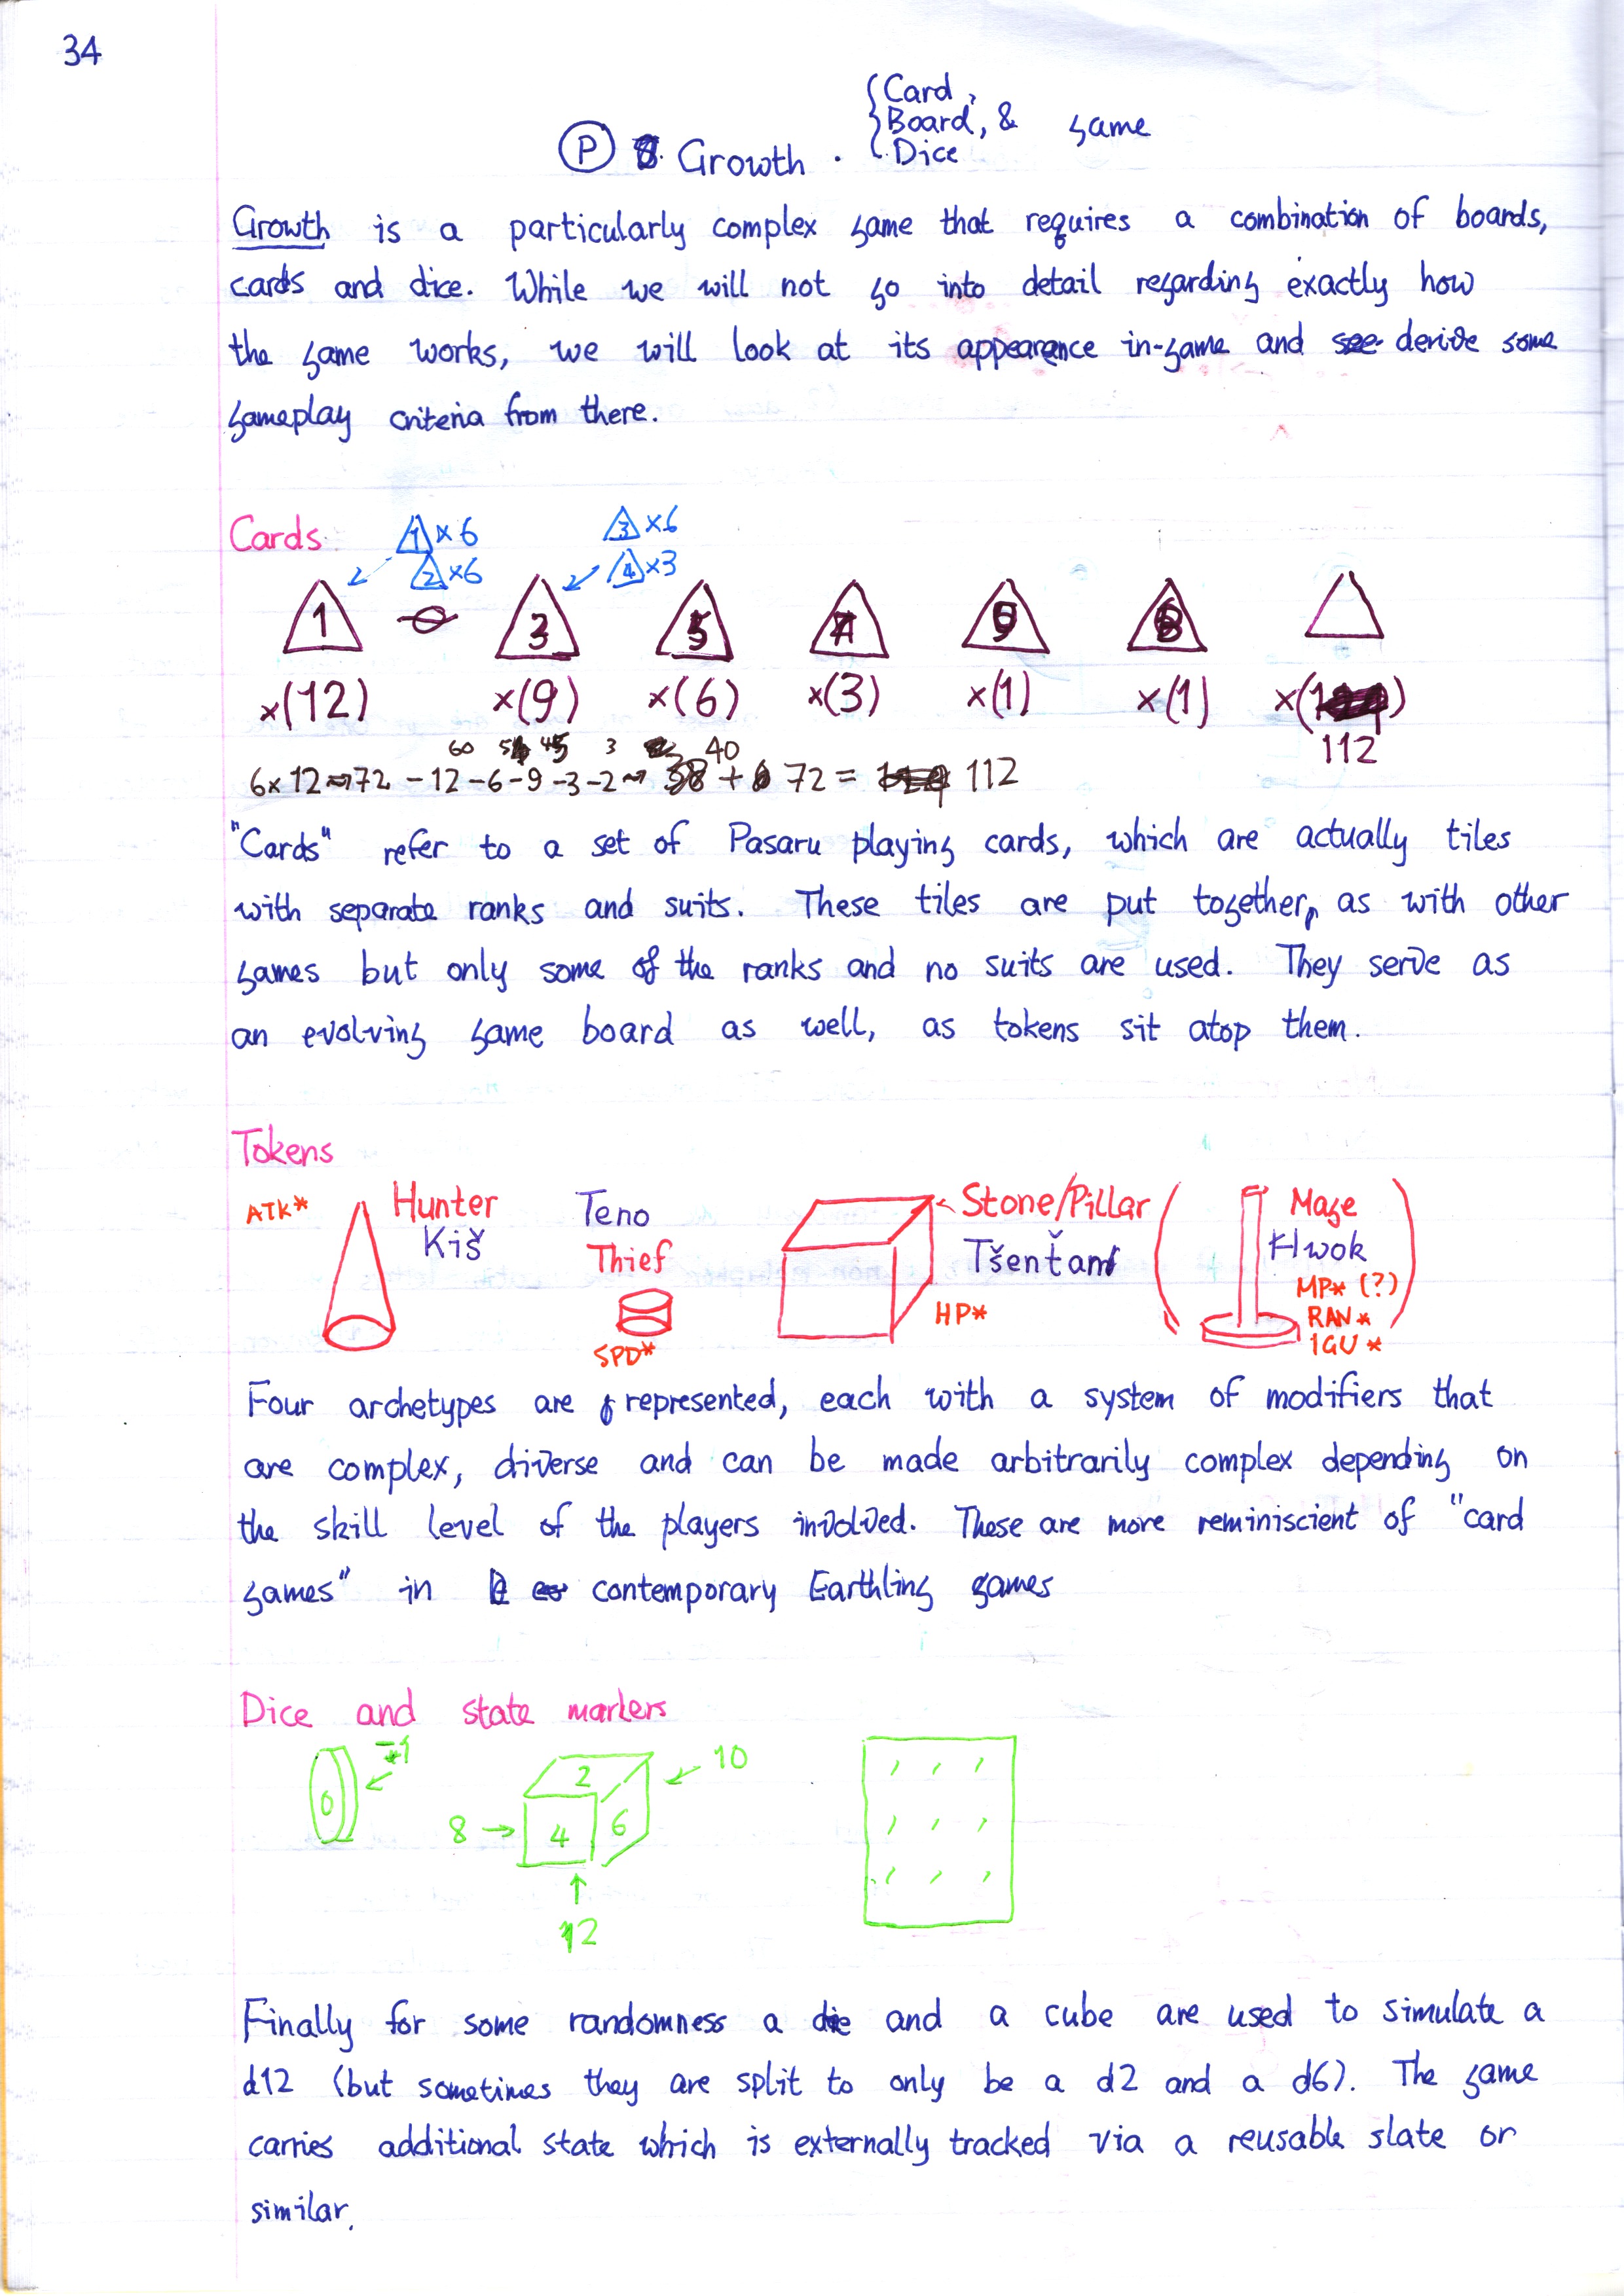 34
Card,
Board, & game
Dice
P Growth.
Growth is a particularly complex game that requires a combination of boards,
cards and dice. While we will not go into detail regarding exactly how
the game works, we will look at its appearance in-game and see derive some
gameplay criteria from there.
Cards
1 ×6 3 ×6
2 ×6 4 ×3
1 3 5
×(12) ×(9) ×(6) ×(3) ×(1) ×(1) ×( )
112
60 45 3 40
6×12 72 -12-6-9-3-2 + 72 = 112
"Cards" refer to a set of Pasaru playing cards, which are actually tiles
with separate ranks and suits. These tiles are put together, as with other
games but only some of the ranks and no suits are used. They serve as
an evolving game board as well, as tokens sit atop them.
Tokens
ATK* Hunter
Kiš
Teno
Thief
SPD*
Stone/Pillar
Tšenťam
HP*
Mage
Hwok
MP* (?)
RAN*
IGU*
Four archetypes are represented, each with a system of modifiers that
are complex, diverse and can be made arbitrarily complex depending on
the skill level of the players involved. These are more reminiscient of "card
games" in contemporary Earthling games
Dice and state markers
0
2
10
8
4 6
12
Finally for some randomness a die and a cube are used to simulate a
d12 (but sometimes they are split to only be a d2 and a d6). The game
carries additional state which is externally tracked via a reusable slate or
similar.